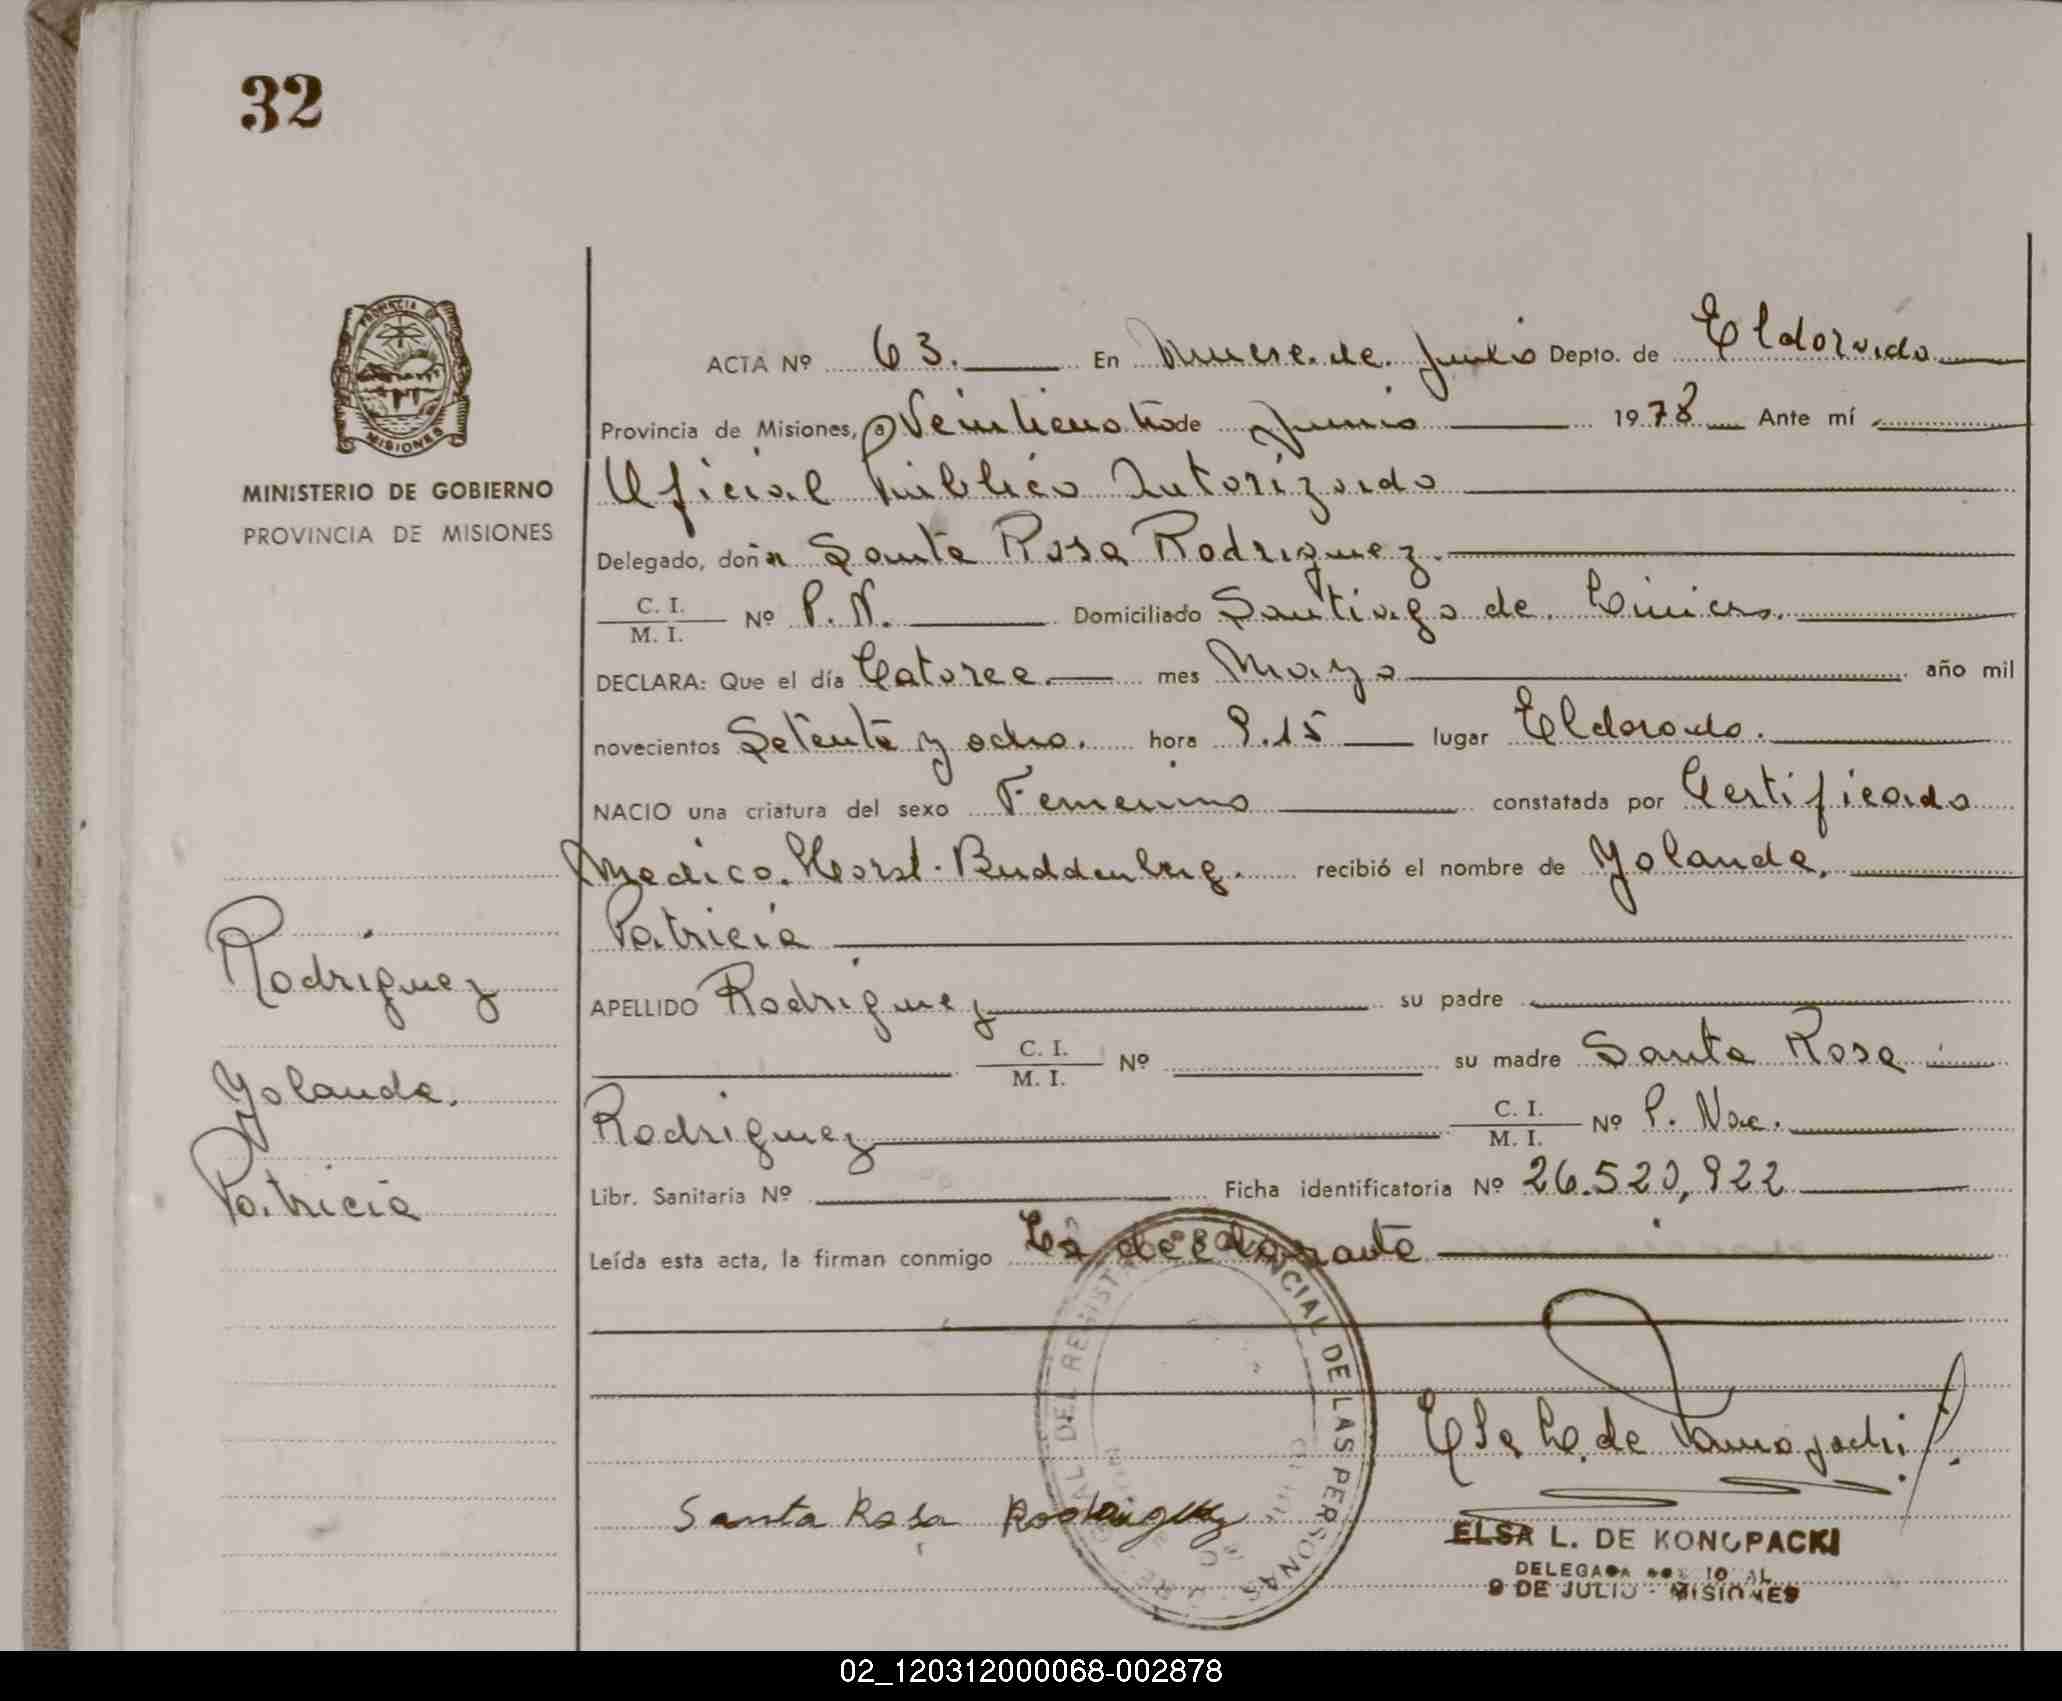 32
PROVINCIA DE
MISIONES
MINISTERIO DE GOBIERNO
PROVINCIA DE MISIONES
ACTA Nº 63. En Nueve de Julio Depto. de Eldorado
Provincia de Misiones, a Veintiocho de Junio 1978 Ante mí
Oficial Público Autorizado
Delegado, doña Santa Rosa Rodriguez.
C. I.
M. I. Nº P. N. Domiciliado Santiago de Liniers.
DECLARA: Que el día Catorce. mes Mayo año mil
novecientos Setenta y ocho. hora 9.15 lugar Eldorado.
NACIO una criatura del sexo Femenino constatada por Certificado
Medico. Horst. Buddenberg. recibió el nombre de Yolanda,
Patricia
APELLIDO Rodriguez su padre
C. I.
M. I. Nº su madre Santa Rosa
Rodriguez C. I.
M. I. Nº P. Nac.
Libr. Sanitaria Nº Ficha identificatoria Nº 26.520,922
Leída esta acta, la firman conmigo La declarante
Rodriguez
Yolanda.
Patricia
DEL REGISTRO PROVINCIAL DE LAS PERSONAS
Elsa L. de Konopacki
Santa Rosa Rodriguez
ELSA L. DE KONOPACKI
DELEGADA
9 DE JULIO - MISIONES
02_120312000068-002878